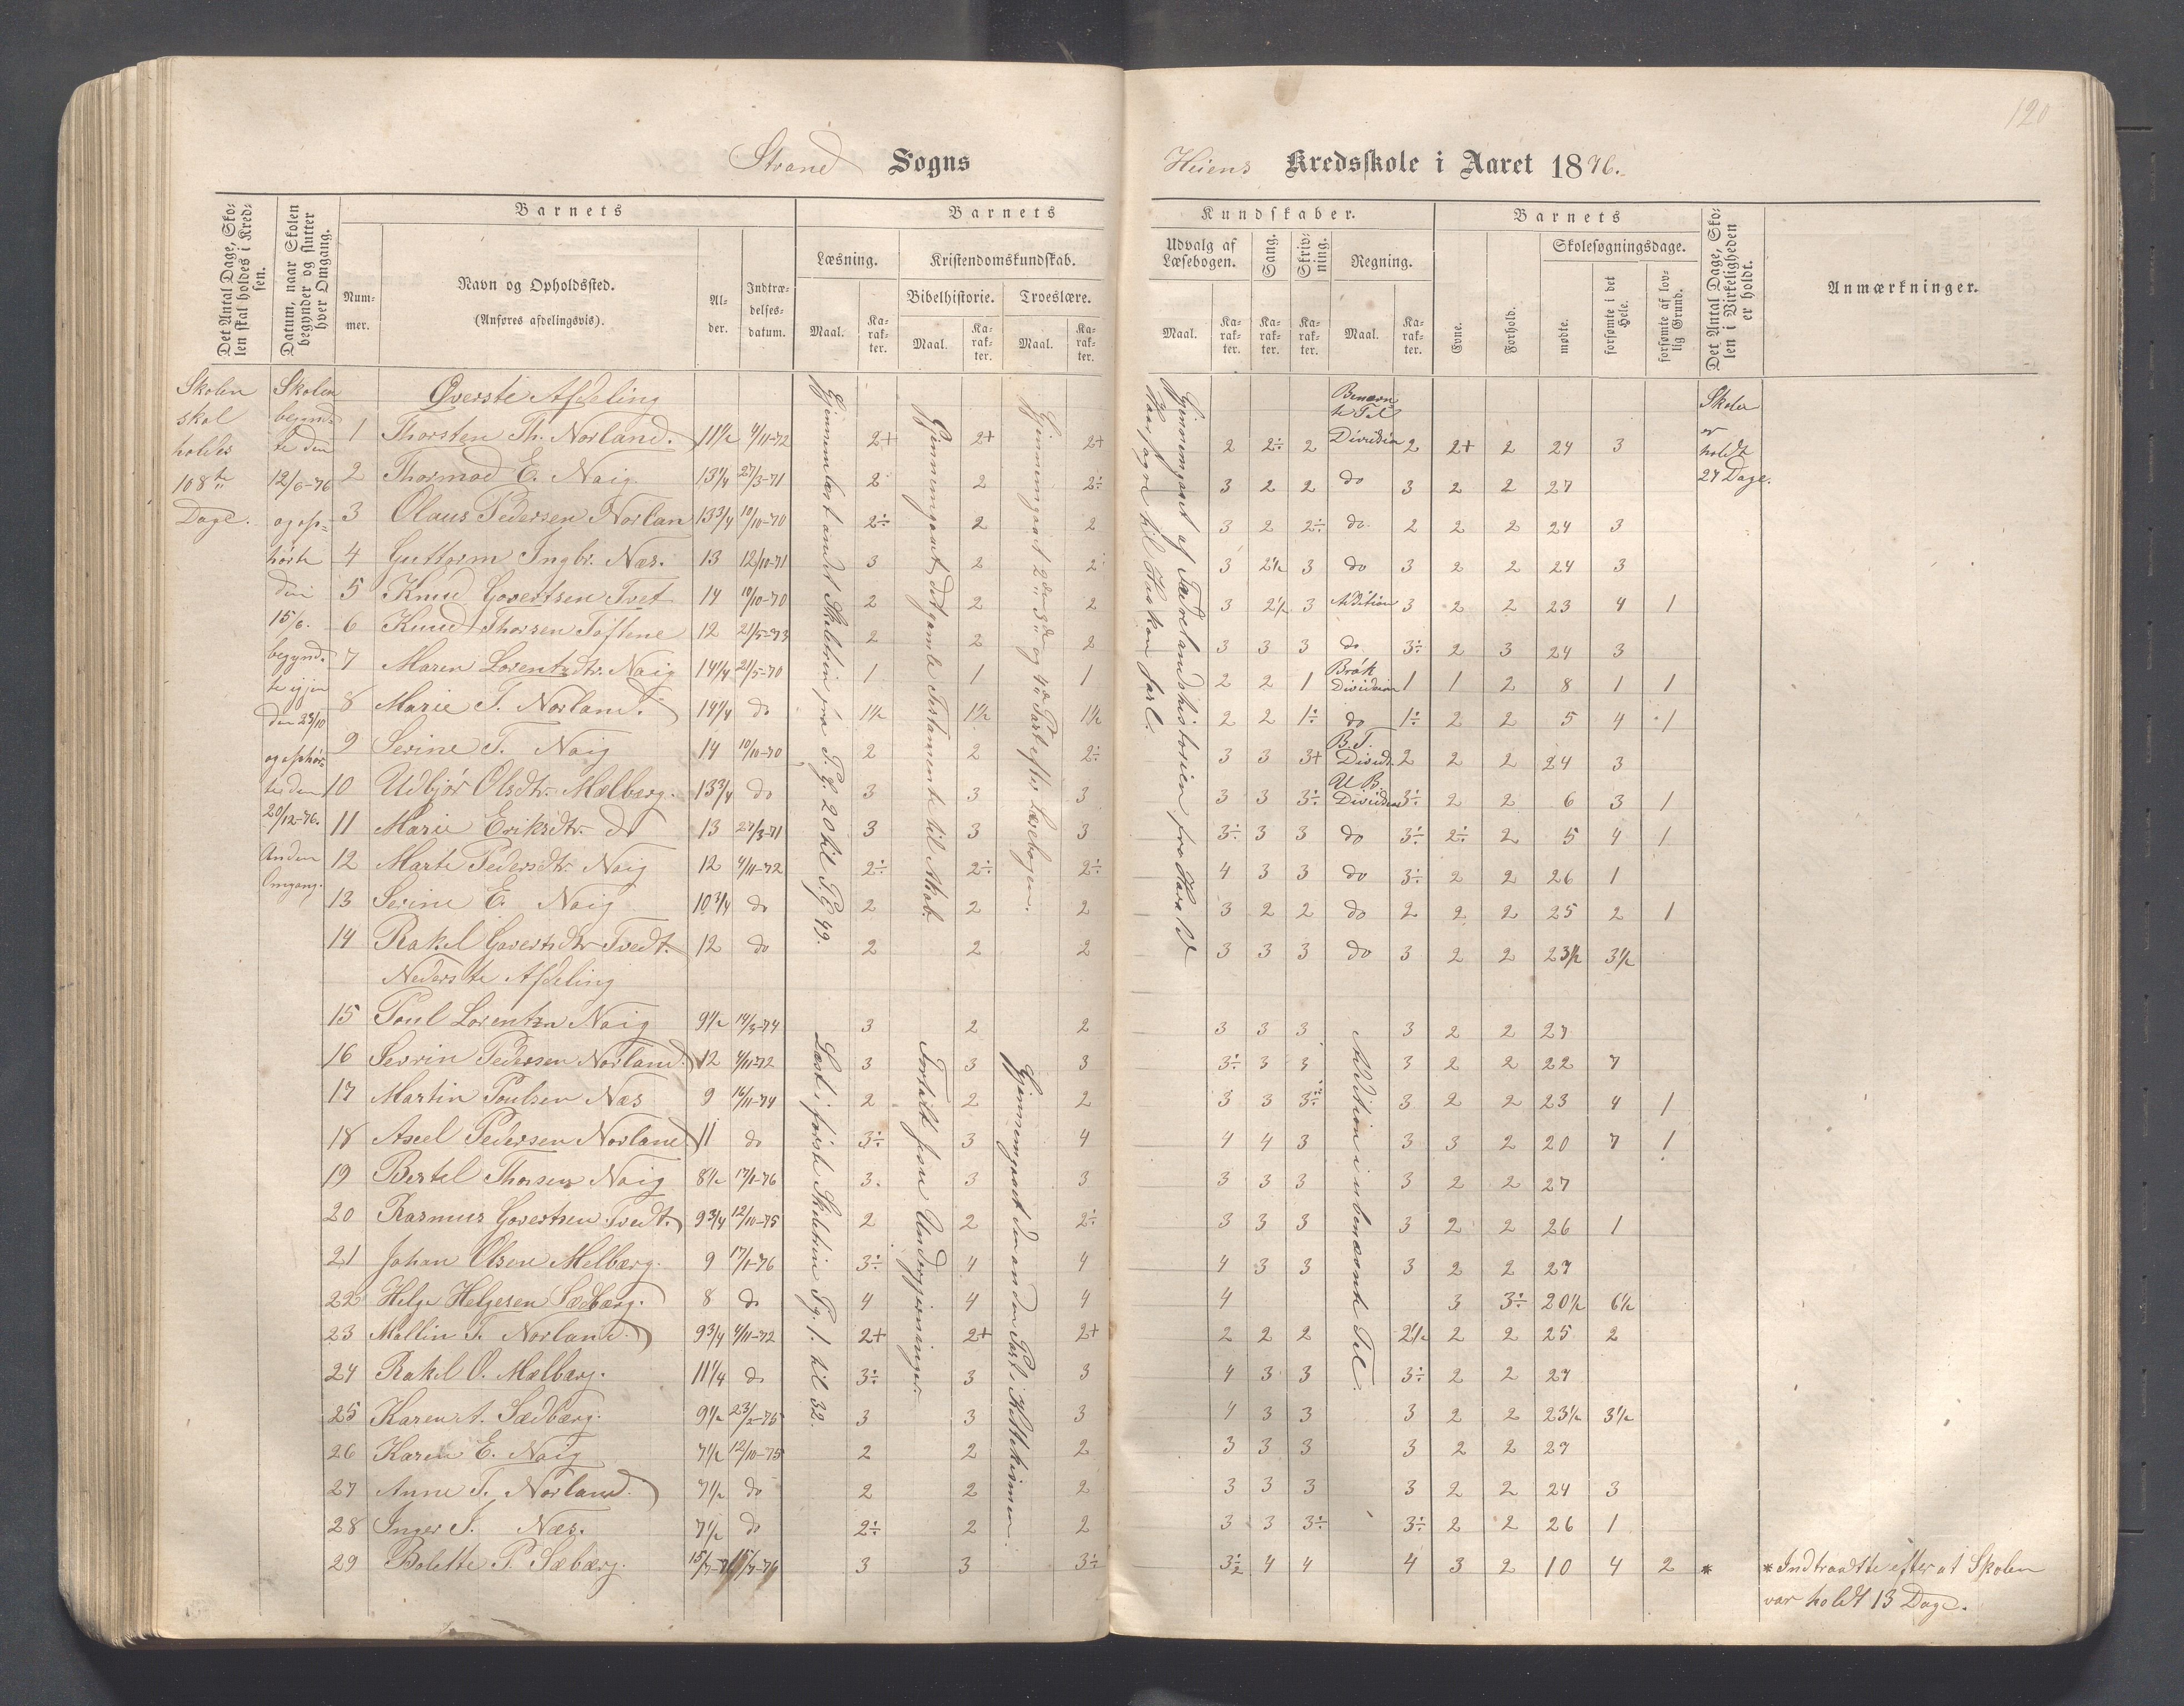 120
Strand Sogns Heiens Kredsskole i Aaret 1876.
Det Antal Dage, Skolen skal holdes i Kredsen.
Datum, naar Skolen begynder og slutter hver Omgang.
Barnets
Nummer.
Navn og Opholdssted.
(Anføres afdelingsvis).
Alder.
Indtrædelsesdatum.
Barnets
Læsning.
Maal.
Karakter.
Kristendomskundskab.
Bibelhistorie.
Maal.
Karakter.
Troeslære.
Maal.
Karakter.
Kundskaber.
Udvalg af Læsebogen.
Maal.
Karakter.
Sang.
Karakter.
Skrivning.
Karakter.
Regning.
Maal.
Karakter.
Barnets
Evne.
Forhold.
Skolesøgningsdage.
mødte.
forsømte i det Hele.
forsømte af lovlig Grund.
Det Antal Dage, Skolen i Virkeligheden er holdt.
Anmærkninger.
Skolen
skal
holdes
108te
Dage.
Skolen
begynd-
te den
12/6-76
og op-
hørte
den
15/6.
begynd-
te igjen
den 23/10
og ophør-
te den
20/12-76.
Anden
Omgang.
Skolen
er
holdt
27 Dage.
Gjennemlæst andet Skoletrin fra P.g. 20 til P.g. 49.
Gjennemgaaet det gamle Testamente til Akab.
Gjennemgaaet 2den 3de og 4de Part efter Læsebogen.
Gjennemgaaet af Fædrelandshistorien fra Harald
Haarfagre til Haakon Jarl.
Øverste Afdeling
1 Thorsten Th. Norland. 11 1/2 4/11-72 2+ 2+ 2+ 2 2÷ 2 Benævn
te Tal
Division 2 2+ 2 24 3
2 Thormod E. Naig 13 1/4 27/3-71 2 2 2÷ 3 2 2 do 3 2 2 27
3 Olaus Pedersen Norlan 13 3/4 10/10-70 2÷ 2 2 3 2 2÷ do 2 2 2 24 3
4 Guttorm Ingbr. Næs. 13 12/10-71 3 2 2 3 2 1/2 3 do 3 2 2 24 3
5 Knud Govertsen Tvet 14 10/10-70 2 2 2 3 2 1/2 3 Addition 3 2 2 23 4 1
6 Knud Thorsen Toftene 12 21/5-73 2 2 2 3 3 3 do 3÷ 2 3 24 3
7 Maren Lorentzdtr. Naig 14 1/4 21/5-70 1 1 1 2 2 1 Brøk
Division 1 1 2 8 1 1
8 Marie T. Norland. 14 1/4 do 1 1/2 1 1/2 1 1/2 2 2 1÷ do 1÷ 2 2 5 4 1
9 Serine T. Naig 14 10/10-70 2 2 2÷ 3 3 3+ B.T.
Divid. 2 2 2 24 3
10 Udbjør Olsdtr. Mælberg. 13 3/4 do 3 3 3 3 3 3÷ U B.
Division 3÷ 2 2 6 3 1
11 Marie Eriksdtr. do 13 27/3-71 3 3 3 3÷ 3 3 do 3÷ 2÷ 2 5 4 1
12 Marte Pedersdtr. Naig 12 4/11-72 2÷ 2÷ 2÷ 4 3 3 do 3÷ 2 2 26 1
13 Serine E. Naig 10 3/4 do 2 2 2 3 2 2 do 2 2 2 25 2 1
14 Rakel Govertsdtr Tvedt. 12 do 2 2 2 3 3 3 do 3 2 2 23 1/2 3 1/2
Nederste Afdeling
Læst i første Skoletrin Pg. 1. til 32.
Fortalt Jesu Undergjerninger.
Gjennemgaaet den anden Part i Kattekismen.
Addition i ubenævnte Tal.
15 Poul Lorentzn Naig 9 1/2 14/3-74 3 2 2 3 3 3 3 2 2 27
16 Sevrin Pedersen Norland. 12 4/11-72 3 3 3 3÷ 3 3 3 2 2 22 7
17 Martin Poulsen Næs 9 16/11-74 2 2 2 3 3 3÷ 3 2 2 23 4 1
18 Axel Pedersen Norland 11 do 3÷ 3 4 4 4 3 3 3 2 20 7 1
19 Bertel Thorsen Naig 8 1/2 17/1-76 3. 3 3 3 3 3 3 2 2 27
20 Rasmus Govertsen Tvedt. 9 3/4 12/10-75 2 2 2÷ 3 3 3 3 2 2 26 1
21 Johan Olsen Melberg. 9 17/1-76 3÷ 4 4 4 3 3 3 2 2 27
22 Helge Helgesen Sædberg. 8 do 4 4 4 4 3 3÷ 20 1/2 6 1/2
23 Mallin T. Norland. 9 3/4 4/11-72 2+ 2+ 2+ 2 2 2 2 1/2 2 2 25 2
24 Rakel O. Mælberg. 11 1/4 do 3÷ 3 3 4 3 3 3÷ 2 2 27
25 Karen A. Sædberg. 9 1/2 23/2-75 3 3 3 4 3 3 3 2 2 23 1/2 3 1/2
26 Karen E. Naig 7 1/2 12/10-75 2 2 2 3 3 3 3 2 2 27
27 Anne T. Norland. 7 1/2 do 2 2 2 3 3 3 3 2 2 24 3
28 Inger I. Næs. 7 1/2 do 2÷ 2 2 3 3 3÷ 3÷ 2 2 26 1
29 Bolette P. Sæberg. 3 3 3÷ 3÷ 4 4 4 3 2 10 4 2 * * Indtraadte efter at Skolen
var holdt 13 Dage.